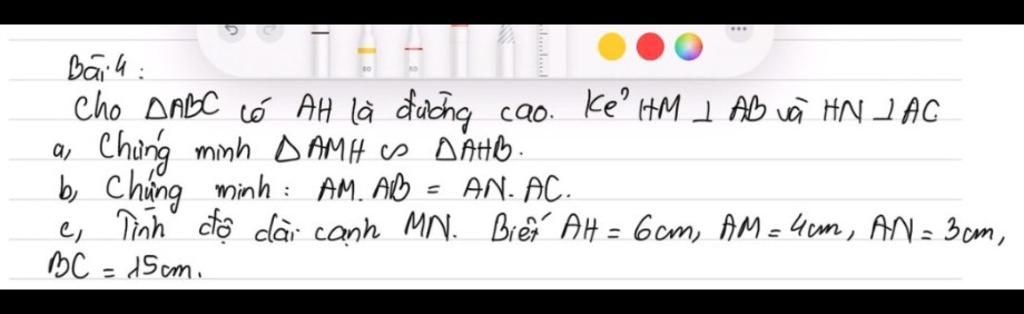 Bài 4 :
Cho ΔABC có AH là đường cao. Kẻ HM ⊥ AB và HN ⊥ AC
a, Chứng minh ΔAMH ∽ ΔAHB.
b, Chứng minh : AM. AB = AN. AC.
c, Tính độ dài cạnh MN. Biết AH = 6cm, AM = 4cm, AN = 3cm,
BC = 15cm.